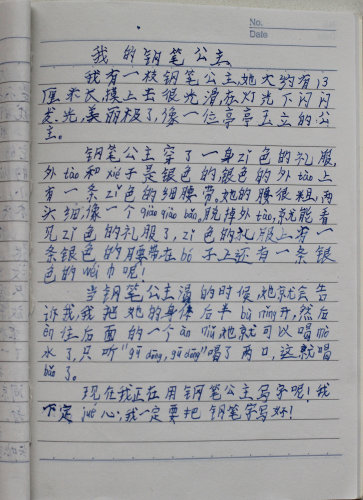 No.
Date
我的钢笔公主
我有一枝钢笔公主,她大约有13
厘米长,摸上去很光滑,在灯光下闪闪
发光,美丽极了,像一位亭亭玉立的公
主。
钢笔公主穿了一身zǐ色的礼服,
外tào和xié子是银色的银色的外tào上
有一条zǐ色的细腰带。她的腰很粗,两
头细,像一个qiāo qiāo bǎn。脱掉外tào,就能看
见zǐ色的礼服了,zǐ色的礼服上有一
条银色的腰带在bó子上还有一条银
色的wéi巾呢!
当钢笔公主渴的时候,她就会告
诉我,我把她的身体后半bù nǐng开,然后
往后面的一个àn niǔ她就可以喝mò
水了,只听"gū dōng, gū dōng"喝了两口,这就喝
bǎo了。
现在我正在用钢笔公主写字呢!我
下定jué心,我一定要把钢笔字写好!